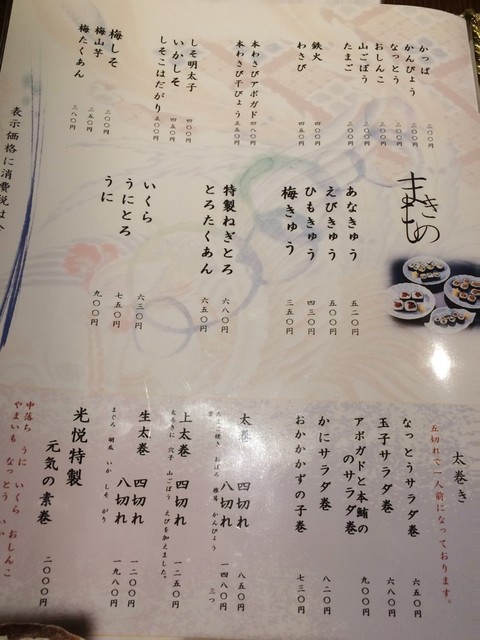 まきもの
かっぱ 二〇〇円
かんぴょう 二〇〇円
なっとう 二〇〇円
おしんこ 二〇〇円
山ごぼう 二〇〇円
たまご 二〇〇円
鉄火 四〇〇円
わさび 四〇〇円
本わさびアボガド 四八〇円
本わさび干ぴょう 三五〇円
しそ明太子 四〇〇円
いかしそ 四五〇円
しそこはだがり 五〇〇円
梅しそ 二〇〇円
梅山芋 二五〇円
梅たくあん 二八〇円
表示価格に消費税は
あなきゅう 五二〇円
えびきゅう 五〇〇円
ひもきゅう 四三〇円
梅きゅう 二五〇円
特製ねぎとろ 六八〇円
とろたくあん 六五〇円
いくら 六三〇円
うにとろ 七五〇円
うに 九〇〇円
太巻き
五切れで一人前になっております。
なっとうサラダ巻 六五〇円
玉子サラダ巻 六八〇円
アボガドと本鮪の
のサラダ巻 九〇〇円
かにサラダ巻 八二〇円
おかかかずの子巻 七三〇円
太巻 四切れ 八五〇円
八切れ 一四八〇円
たまご焼き おぼろ 椎茸 かんぴょう
上太巻 四切れ 一二五〇円
太巻きに 穴子 山ごぼう えびを加えました。
生太巻 四切れ 一二〇〇円
八切れ 一九八〇円
まぐろ 明太 いか しそ がり
光悦特製
元気の素巻 二〇〇〇円
中落ち うに いくら おしんこ
やまいも なっとう